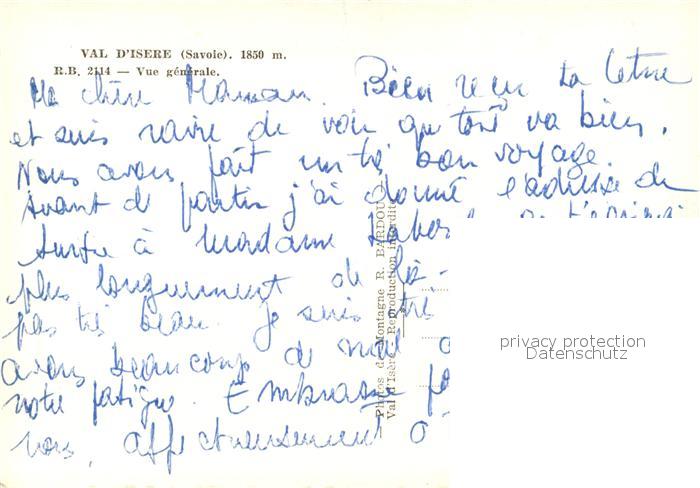 VAL D'ISERE (Savoie). 1850 m.
R.B. 2114 — Vue générale.
Ma chère Maman. Bien reçu ta lettre
et suis ravie de voir que tout va bien.
Nous avons fait un très bon voyage.
Avant de partir j'ai donné l'adresse de
à Madame
plus longuement de
pas très beau. Je suis très
avons beaucoup de mal
notre fatigue. Embrasse
vous, affectueusement à
Photos de Montagne R. BARDOU
Val d'Isère - Reproduction interdite
privacy protection
Datenschutz